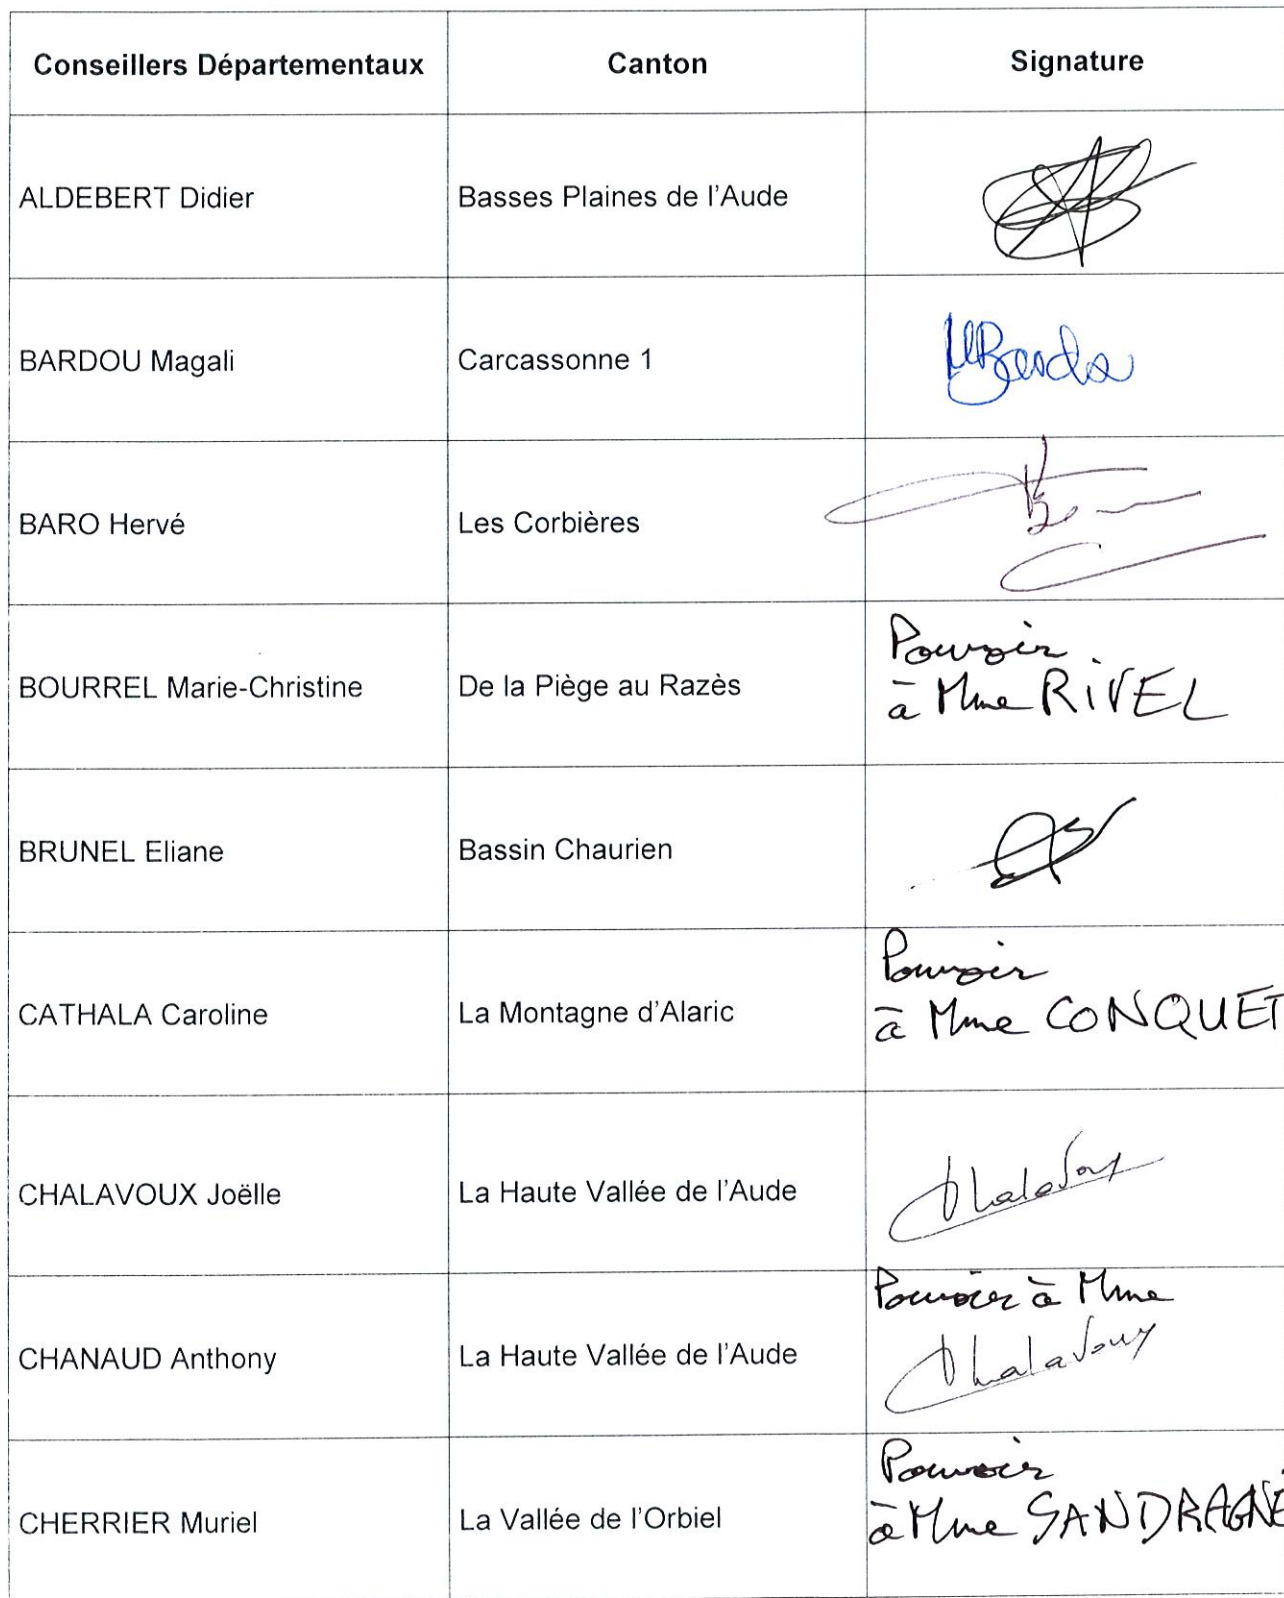 Conseillers Départementaux Canton Signature
ALDEBERT Didier Basses Plaines de l'Aude
BARDOU Magali Carcassonne 1
BARO Hervé Les Corbières
BOURREL Marie-Christine De la Piège au Razès Pouvoir
à Mme RIVEL
BRUNEL Eliane Bassin Chaurien
CATHALA Caroline La Montagne d'Alaric Pouvoir
à Mme CONQUET
CHALAVOUX Joëlle La Haute Vallée de l'Aude Chalavoux
CHANAUD Anthony La Haute Vallée de l'Aude Pouvoir à Mme
Chalavoux
CHERRIER Muriel La Vallée de l'Orbiel Pouvoir
à Mme SANDRAGNÉ